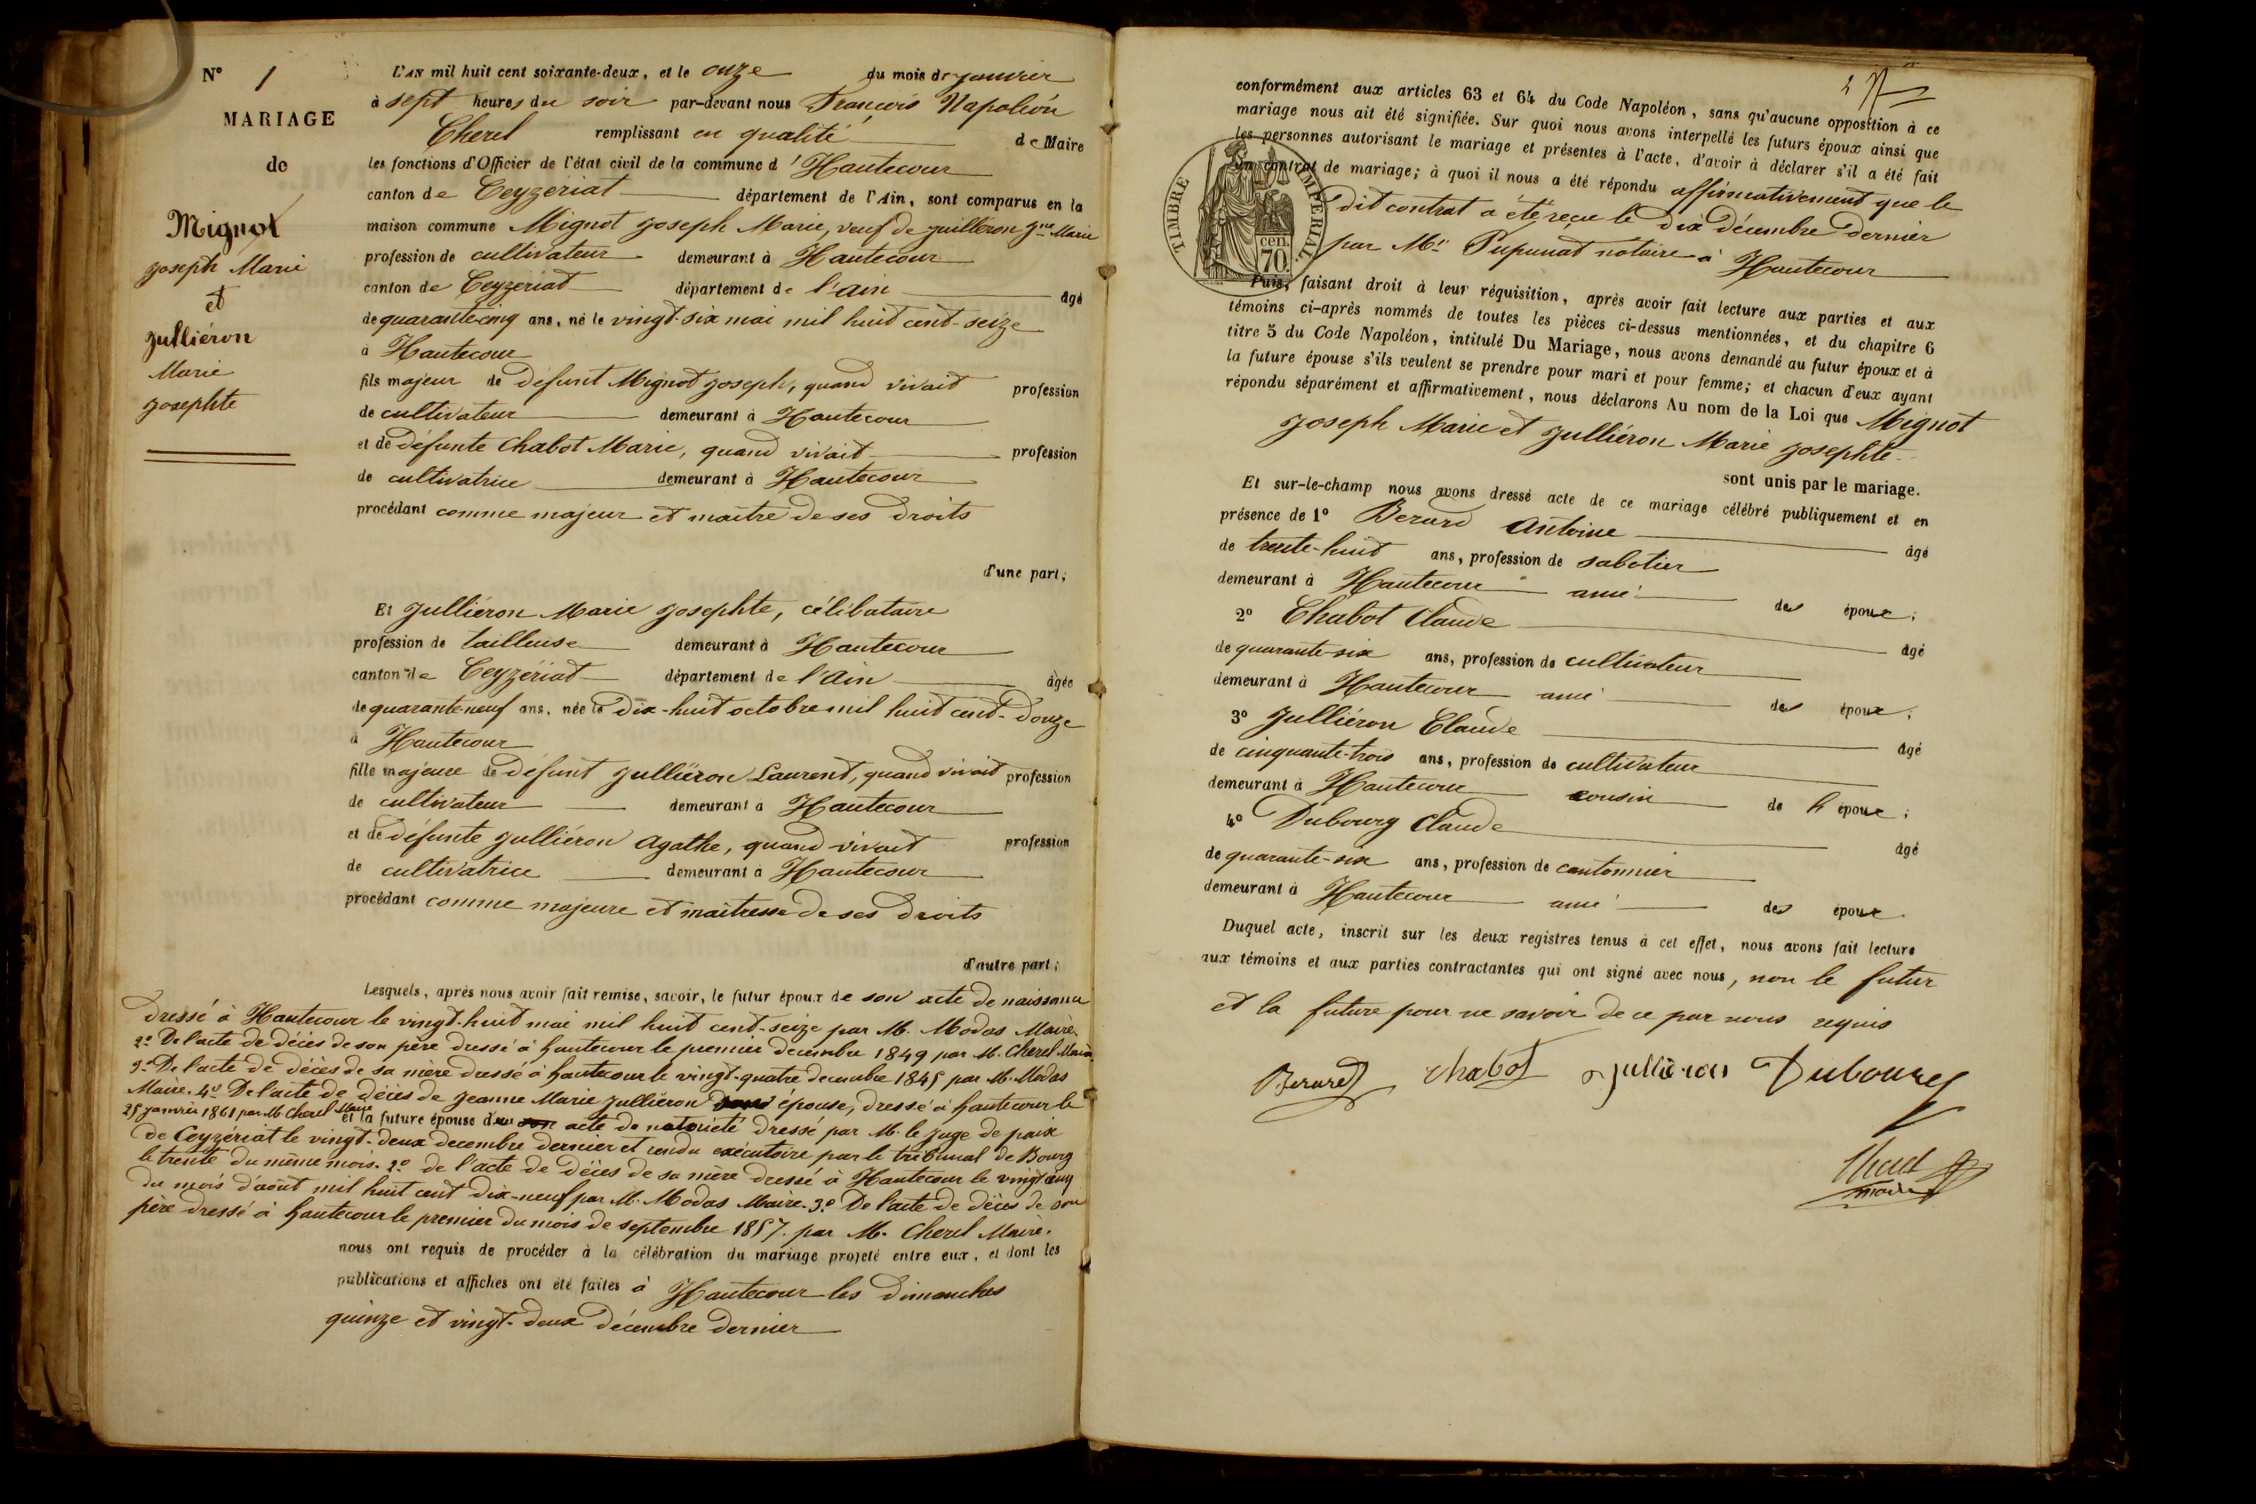 N° 1
MARIAGE
de
Mignot
Joseph Marie
et
Julliéron
Marie
Josephte
L'AN mil huit cent soixante-deux, et le onze du mois de janvier
à sept heures du soir par-devant nous François Napoléon
Cherel remplissant en qualité de Maire
les fonctions d'Officier de l'état civil de la commune d'Hautecour
canton de Ceyzeriat département de l'Ain, sont comparus en la
maison commune Mignot Joseph Marie, veuf de Juilliéron Jne Marie
profession de cultivateur demeurant à Hautecour
canton de Ceyzériat département de l'Ain âgé
de quarante-cinq ans, né le vingt-six mai mil huit cent-seize
à Hautecour
fils majeur de défunt Mignot Joseph, quand vivait profession
de cultivateur demeurant à Hautecour
et de défunte Chabot Marie, quand vivait profession
de cultivatrice demeurant à Hautecour
procédant comme majeur et maître de ses droits
d'une part;
Et Julliéron Marie Josephte, célibataire
profession de tailleuse demeurant à Hautecour
canton de Ceyzériat département de l'Ain âgée
de quarante-neuf ans, née le dix-huit octobre mil huit cent-douze
à Hautecour
fille majeure de défunt Julliéron Laurent, quand vivait profession
de cultivateur demeurant à Hautecour
et de défunte Julliéron Agathe, quand vivait profession
de cultivatrice demeurant à Hautecour
procédant comme majeure et maîtresse de ses droits
d'autre part;
Lesquels, après nous avoir fait remise, savoir, le futur époux de son acte de naissance
dressé à Hautecour le vingt-huit mai mil huit cent-seize par M. Modas Maire.
2° De l'acte de décès de son père dressé à hautecour le premier decembre 1849 par M. Cherel Maire
3° De l'acte de décès de sa mère dressé à hautecour le vingt-quatre decembre 1845 par M. Modas
Maire. 4° De l'acte de décès de Jeanne Marie Julliéron épouse, dressé à hautecour le
25 janvier 1861 par M Cherel Maire et la future épouse d'un acte de notoriété dressé par M. le Juge de paix
de Ceyzériat le vingt-deux decembre dernier et rendu exécutoire par le tribunal de Bourg
le trente du même mois. 2° de l'acte de décès de sa mère dressé à Hautecour le vingt cinq
du mois d'août mil huit cent dix-neuf par M. Modas Maire. 3° De l'acte de décès de son
père dressé à hautecour le premier du mois de septembre 1857. par M. Cherel Maire.
nous ont requis de procéder à la célébration du mariage projeté entre eux, et dont les
publications et affiches ont été faites à Hautecour les dimanches
quinze et vingt-deux décembre dernier
conformément aux articles 63 et 64 du Code Napoléon, sans qu'aucune opposition à ce
mariage nous ait été signifiée. Sur quoi nous avons interpellé les futurs époux ainsi que
les personnes autorisant le mariage et présentes à l'acte, d'avoir à déclarer s'il a été fait
un contrat de mariage; à quoi il nous a été répondu affirmativement que le
dit contrat a été reçu le dix décembre dernier
par Me Pupunat notaire à Hautecour
TIMBRE IMPERIAL
70 cen.
Puis, faisant droit à leur réquisition, après avoir fait lecture aux parties et aux
témoins ci-après nommés de toutes les pièces ci-dessus mentionnées, et du chapitre 6
titre 5 du Code Napoléon, intitulé Du Mariage, nous avons demandé au futur époux et à
la future épouse s'ils veulent se prendre pour mari et pour femme; et chacun d'eux ayant
répondu séparément et affirmativement, nous déclarons Au nom de la Loi que Mignot
Joseph Marie et Julliéron Marie Josephte
sont unis par le mariage.
Et sur-le-champ nous avons dressé acte de ce mariage célébré publiquement et en
présence de 1° Berard Antoine âgé
de trente-huit ans, profession de sabotier
demeurant à Hautecour ami des époux;
2° Chabot Claude âgé
de quarante-six ans, profession de cultivateur
demeurant à Hautecour ami des époux;
3° Julliéron Claude âgé
de cinquante-trois ans, profession de cultivateur
demeurant à Hautecour cousin de l'épouse;
4° Dubourg Claude âgé
de quarante-six ans, profession de cantonnier
demeurant à Hautecour ami des époux.
Duquel acte, inscrit sur les deux registres tenus à cet effet, nous avons fait lecture
aux témoins et aux parties contractantes qui ont signé avec nous, non le futur
et la future pour ne savoir de ce par nous requis
Berard Chabot Jullieron Dubourg
Cherel
maire